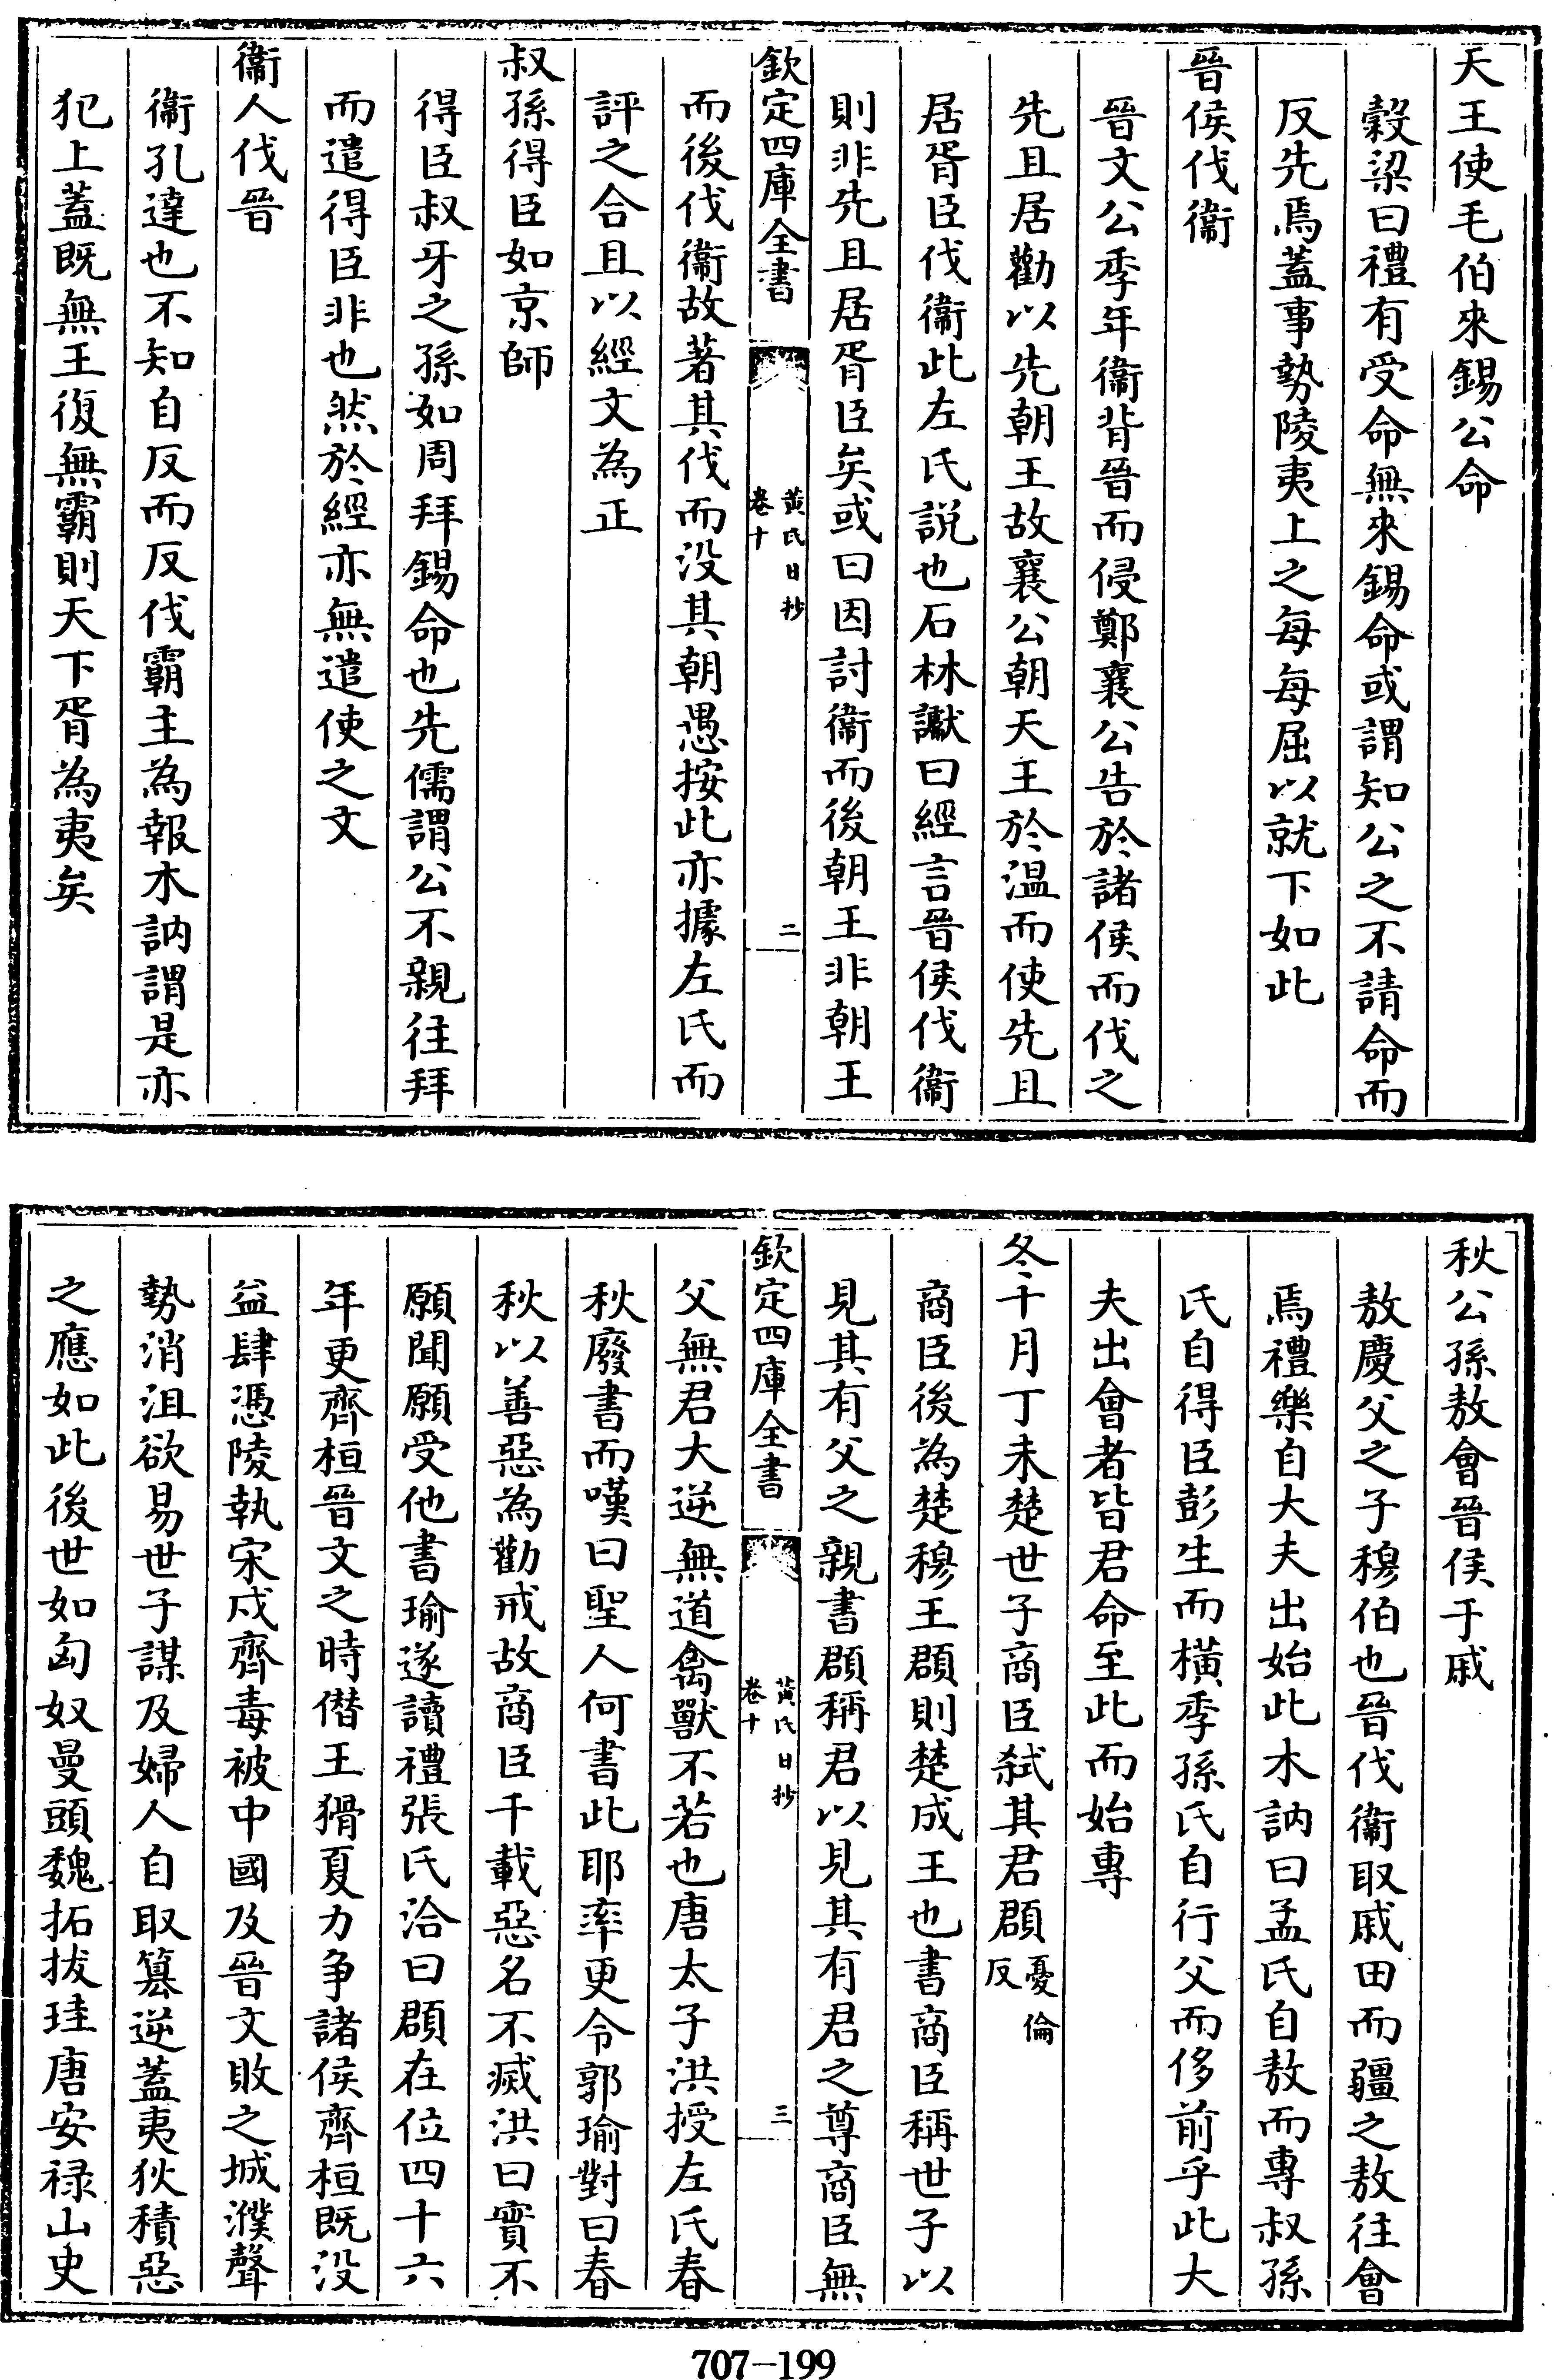 天王使毛伯來錫公命
穀梁曰禮有受命無來錫命或謂知公之不請命而
反先焉蓋事勢陵夷上之每每屈以就下如此
晉侯伐衞
晉文公季年衞背晉而侵鄭襄公告於諸侯而伐之
先且居勸以先朝王故襄公朝天王於温而使先且
居胥臣伐衞此左氏説也石林讞曰經言晉侯伐衞
則非先且居胥臣矣或曰因討衞而後朝王非朝王
欽定四庫全書
黄氏日抄
卷十
二
而後伐衞故著其伐而没其朝愚按此亦據左氏而
評之合且以經文為正
叔孫得臣如京師
得臣叔牙之孫如周拜錫命也先儒謂公不親往拜
而遣得臣非也然於經亦無遣使之文
衞人伐晉
衞孔達也不知自反而反伐霸主為報木訥謂是亦
犯上蓋既無王復無霸則天下胥為夷矣
秋公孫敖會晉侯于戚
敖慶父之子穆伯也晉伐衞取戚田而疆之敖往會
焉禮樂自大夫出始此木訥曰孟氏自敖而專叔孫
氏自得臣彭生而橫季孫氏自行父而侈前乎此大
夫出會者皆君命至此而始專
冬十月丁未楚世子商臣弑其君頵憂倫
反
商臣後為楚穆王頵則楚成王也書商臣稱世子以
見其有父之親書頵稱君以見其有君之尊商臣無
欽定四庫全書
黄氏日抄
卷十
三
父無君大逆無道禽獸不若也唐太子洪授左氏春
秋廢書而嘆曰聖人何書此耶率更令郭瑜對曰春
秋以善惡為勸戒故商臣千載惡名不滅洪曰實不
願聞願受他書瑜遂讀禮張氏洽曰頵在位四十六
年更齊桓晉文之時僭王猾夏力争諸侯齊桓既没
益肆憑陵執宋戍齊毒被中國及晉文敗之城濮聲
勢消沮欲易世子謀及婦人自取簒逆蓋夷狄積惡
之應如此後世如匈奴曼頭魏拓拔珪唐安禄山史
707-199